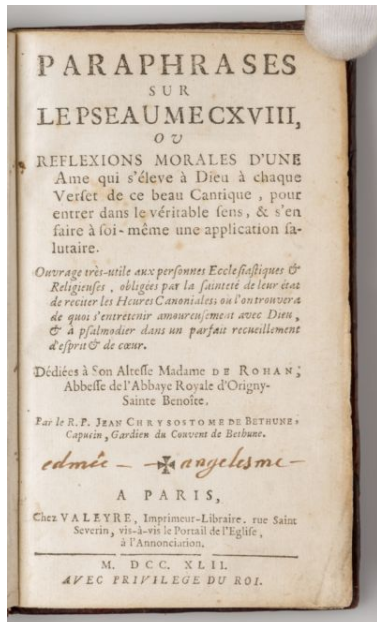 PARAPHRASES
SUR
LE PSEAUME CXVIII,
OU
REFLEXIONS MORALES D'UNE
Ame qui s'éleve à Dieu à chaque
Verset de ce beau Cantique, pour
entrer dans le véritable sens, & s'en
faire à soi-même une application sa-
lutaire.
Ouvrage très-utile aux personnes Ecclesiastiques &
Religieuses, obligées par la sainteté de leur état
de réciter les Heures Canoniales; où l'on trouvera
de quoi s'entretenir amoureusement avec Dieu,
& à psalmodier dans un parfait recueillement
d'esprit & de cœur.
Dédiées à Son Altesse Madame DE ROHAN,
Abbesse de l'Abbaye Royale d'Origny-
Sainte Benoîte.
Par le R. P. JEAN CHRYSOSTOME DE BETHUNE,
Capucin, Gardien du Couvent de Bethune.
edmée — ✠ angelesme —
A PARIS,
Chez VALEYRE, Imprimeur-Libraire, rue Saint
Severin, vis-à-vis le Portail de l'Eglise,
à l'Annonciation.
M. DCC. XLII.
AVEC PRIVILEGE DU ROI.